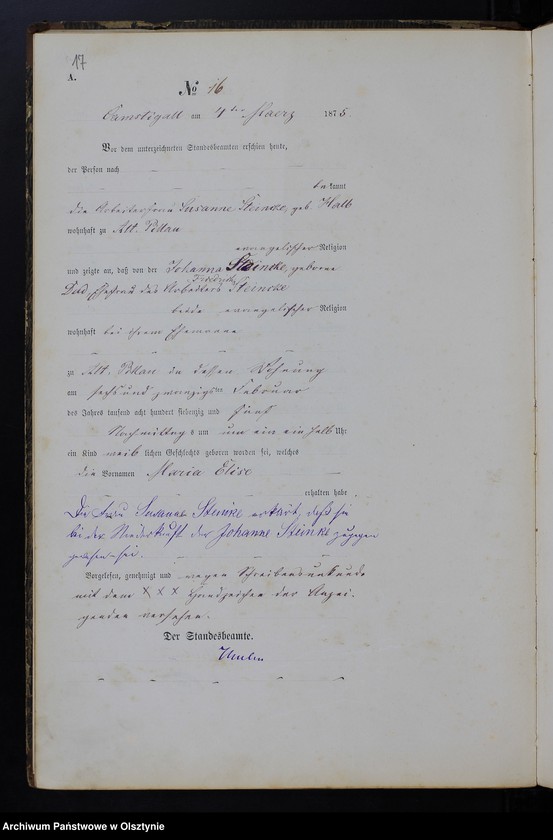 17
A.
No 16
Camstigall am 4ten Maerz 1875.
Vor dem unterzeichneten Standesbeamten erschien heute,
der Person nach
bekannt
die Arbeiterfrau Susanne Steincke, geb. Kalb
wohnhaft zu Alt. Pillau
evangelischer Religion
und zeigte an, daß von der Johanna Steincke, geborene
Ehefrau des Arbeiters Friedrich Steincke
beide evangelischer Religion
wohnhaft bei ihrem Ehemanne
zu Alt. Pillau in dessen Wohnung
am sechs und zwanzigsten Februar
des Jahres tausend acht hundert siebenzig und fünf
Nachmittags um um ein ein halb Uhr
ein Kind weiblichen Geschlechts geboren worden sei, welches
die Vornamen Maria Elise
erhalten habe.
Die Frau Susanne Steincke erklärt, daß sie
bei der Niederkunft der Johanne Steinke zugegen
gewesen sei.
Vorgelesen, genehmigt und wegen Schreibensunkunde
mit dem X X X Handzeichen der Anzei-
genden versehen.
Der Standesbeamte.
Archiwum Państwowe w Olsztynie